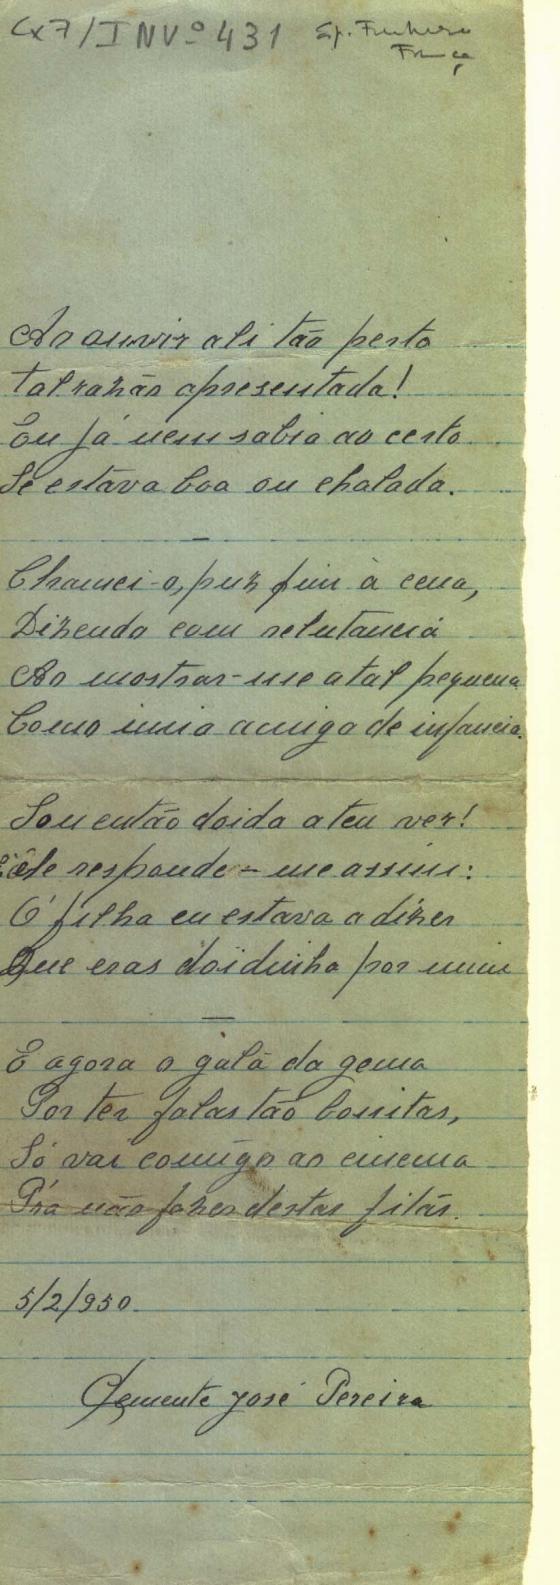 Cx7/INVº431 Esp.
Ao ouvir ali tão perto
tal razão apresentada!
Eu já nem sabia ao certo
Se estava boa ou chalada.
—
Chamei-o, puz fim à cena,
Dizendo com relutancia
Ao mostrar-me a tal pequena
Como uma amiga de infancia.
Sou então doida a teu ver!
Êle responde-me assim:
Ó filha eu estava a dizer
Que eras doidinha por mim
—
E agora o galã da gema
Por ter falas tão bonitas,
Só vai comigo ao cinema
P'ra não fazer destas fitas.
5/2/950
Clemente José Pereira